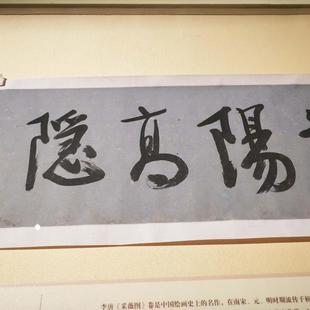 陽高隱
李唐《采薇图》卷是中国绘画史上的名作，在南宋、元、明时期流传于